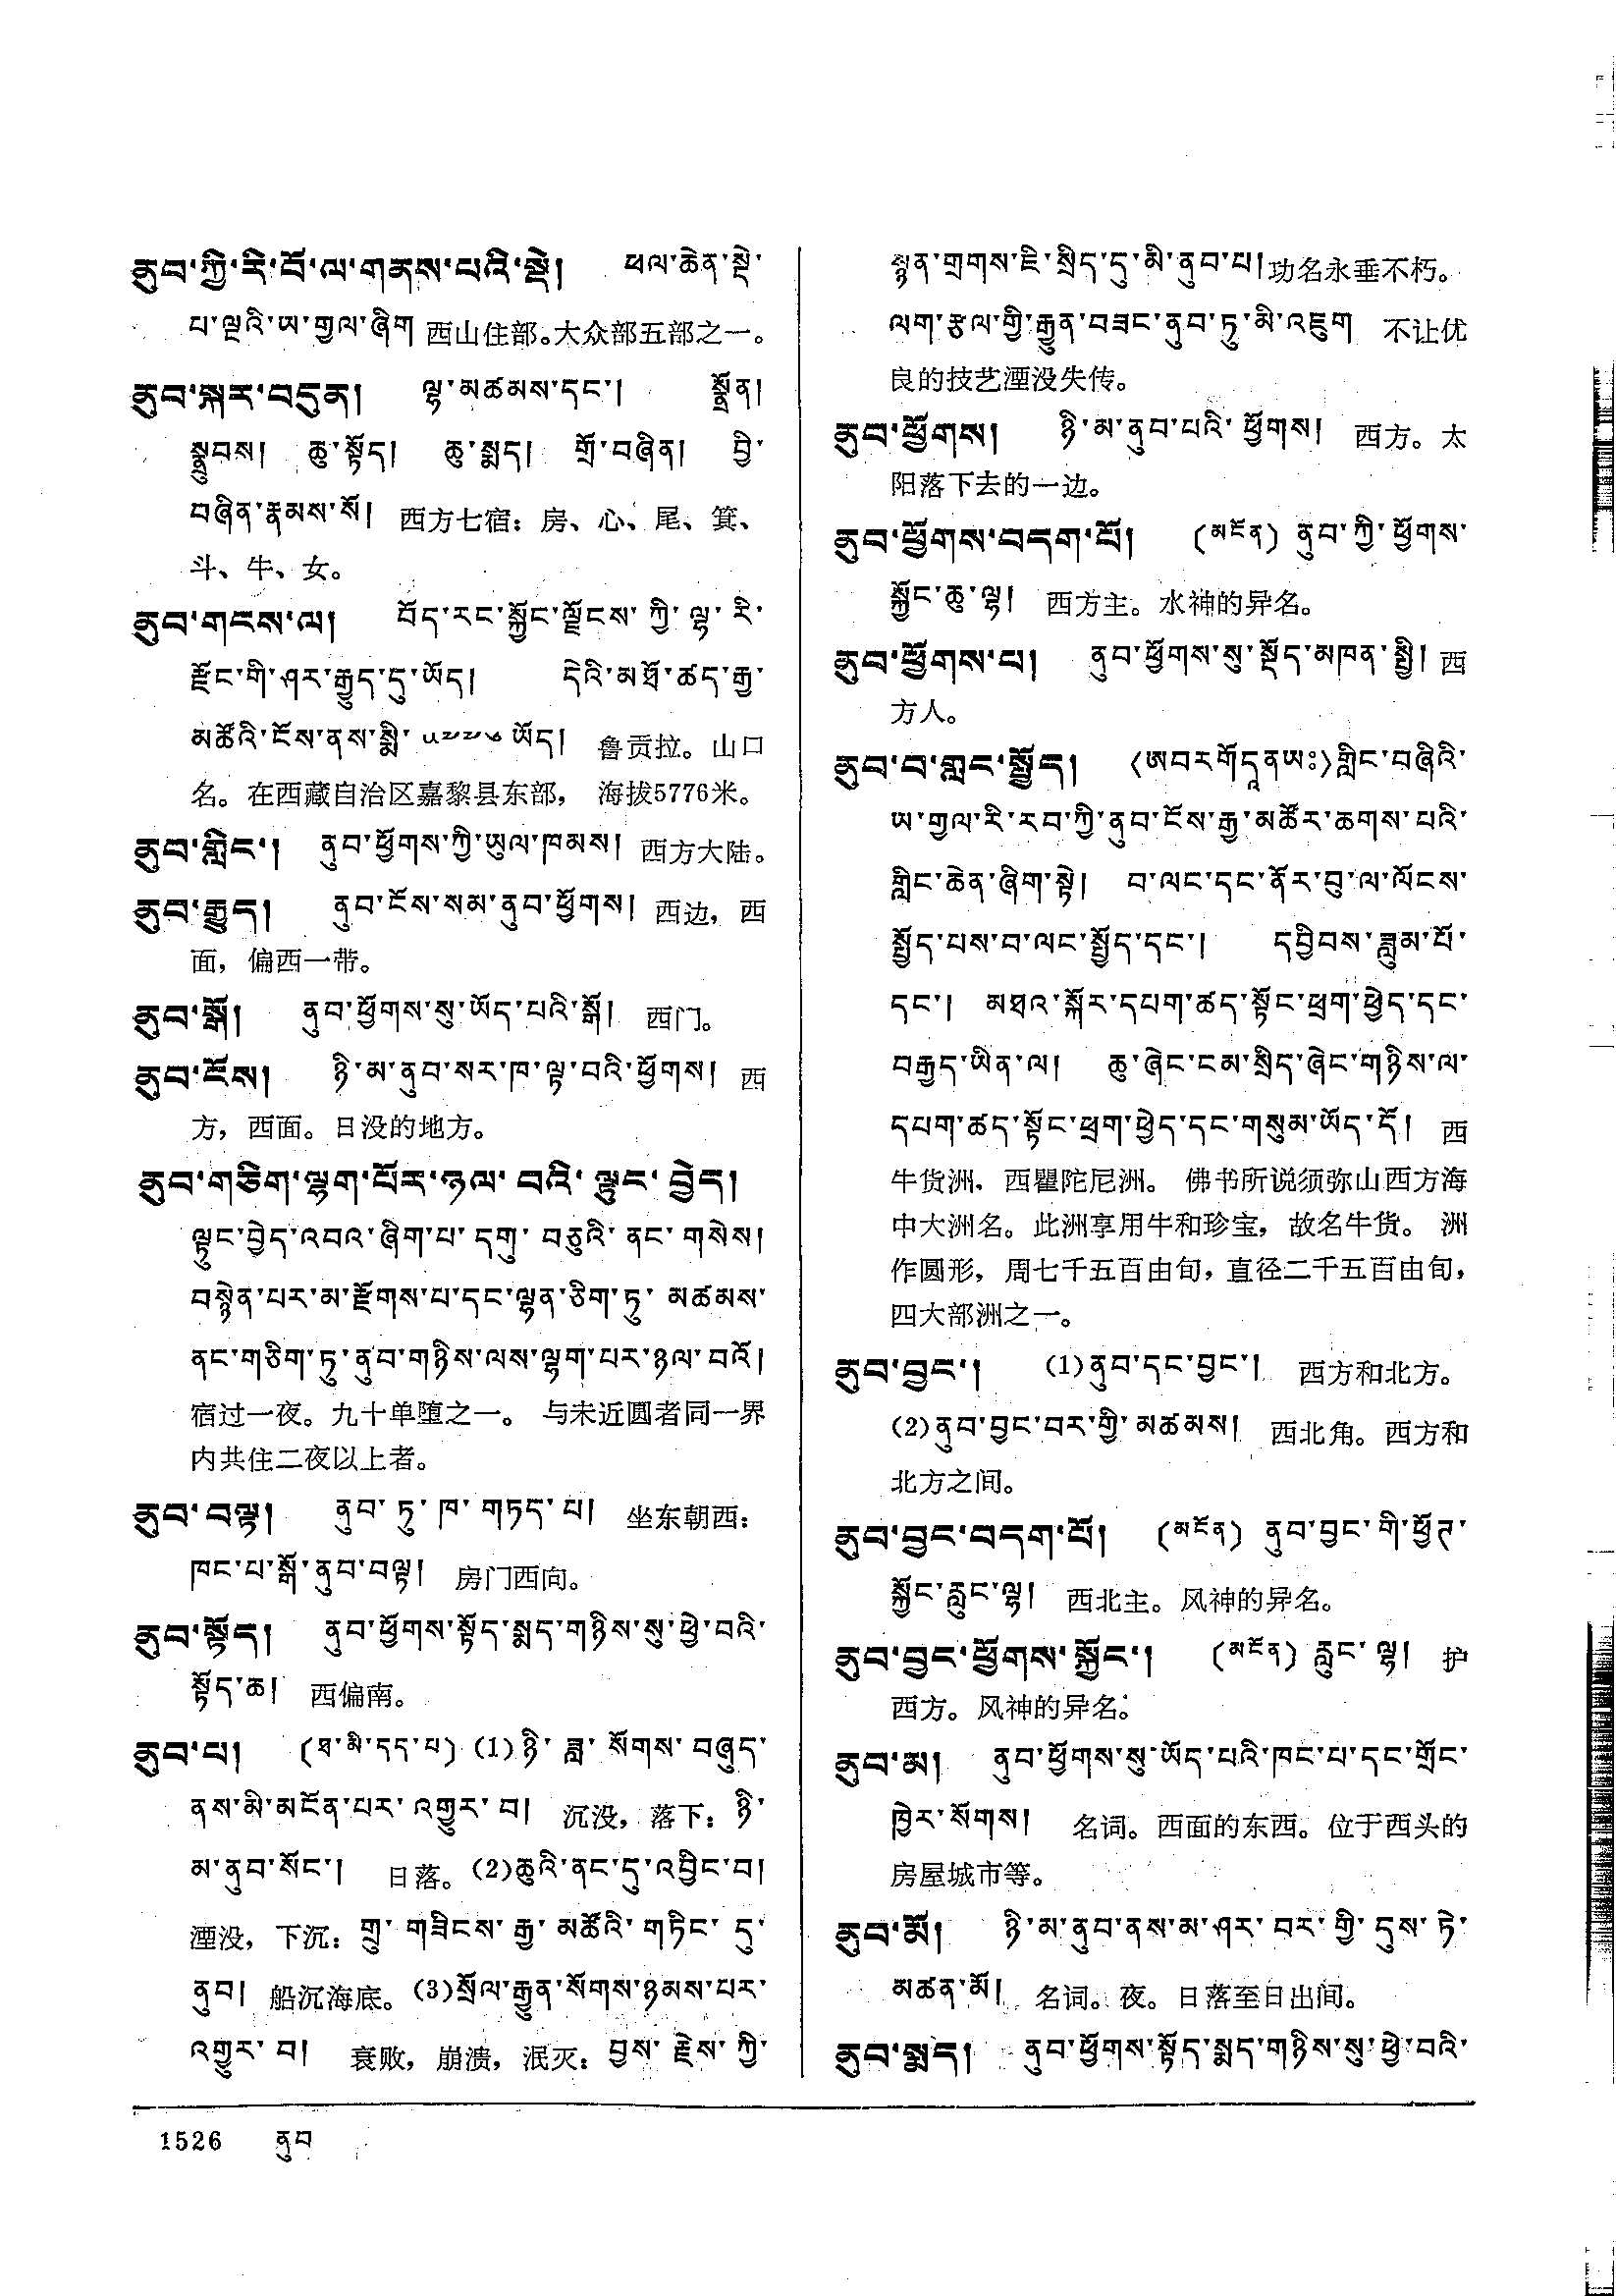 ནུབ་ཀྱི་རི་བོ་ལ་གནས་པའི་སྡེ། ཕལ་ཆེན་སྡེ་
པ་ལྔའི་ཡ་གྱལ་ཞིག 西山住部。大众部五部之一。
ནུབ་སྐར་བདུན། ལྷ་མཚམས་དང་། སྣྲོན།
སྣྲུབས། ཆུ་སྟོད། ཆུ་སྨད། གྲོ་བཞིན། བྱི་
བཞིན་རྣམས་སོ། 西方七宿：房、心、尾、箕、
斗、牛、女。
ནུབ་གངས་ལ། བོད་རང་སྐྱོང་ལྗོངས་ཀྱི་ལྷ་རི་
རྫོང་གི་ཤར་རྒྱུད་དུ་ཡོད། དེའི་མཐོ་ཚད་རྒྱ་
མཚོའི་ངོས་ནས་སྨི་༥༧༧༦ཡོད། 鲁贡拉。山口
名。在西藏自治区嘉黎县东部，海拔5776米。
ནུབ་གླིང་། ནུབ་ཕྱོགས་ཀྱི་ཡུལ་ཁམས། 西方大陆。
ནུབ་རྒྱུད། ནུབ་ངོས་སམ་ནུབ་ཕྱོགས། 西边，西
面，偏西一带。
ནུབ་སྒོ། ནུབ་ཕྱོགས་སུ་ཡོད་པའི་སྒོ། 西门。
ནུབ་ངོས། ཉི་མ་ནུབ་སར་ཁ་ལྟ་བའི་ཕྱོགས། 西
方，西面。日没的地方。
ནུབ་གཅིག་ལྷག་པོར་ཉལ་བའི་ལྟུང་བྱེད།
ལྟུང་བྱེད་འབའ་ཞིག་པ་དགུ་བཅུའི་ནང་གསེས།
བསྙེན་པར་མ་རྫོགས་པ་དང་ལྷན་ཅིག་ཏུ་མཚམས་
ནང་གཅིག་ཏུ་ནུབ་གཉིས་ལས་ལྷག་པར་ཉལ་བའོ།
宿过一夜。九十单堕之一。与未近圆者同一界
内共住二夜以上者。
ནུབ་བལྟ། ནུབ་ཏུ་ཁ་གཏད་པ། 坐东朝西：
ཁང་པ་སྒོ་ནུབ་བལྟ། 房门西向。
ནུབ་སྟོད། ནུབ་ཕྱོགས་སྟོད་སྨད་གཉིས་སུ་ཕྱེ་བའི་
སྟོད་ཆ། 西偏南。
ནུབ་པ། (ཐ་མི་དད་པ) (1)ཉི་ཟླ་སོགས་བཞུད་
ནས་མི་མངོན་པར་འགྱུར་བ། 沉没，落下：ཉི་
མ་ནུབ་སོང་། 日落。(2)ཆུའི་ནང་དུ་འབྱིང་བ།
湮没，下沉：གྲུ་གཟིངས་རྒྱ་མཚོའི་གཏིང་དུ་
ནུབ། 船沉海底。(3)སྲོལ་རྒྱུན་སོགས་ཉམས་པར་
འགྱུར་བ། 衰败，崩溃，泯灭：བྱས་རྗེས་ཀྱི་
སྙན་གྲགས་ཇི་སྲིད་དུ་མི་ནུབ་པ།功名永垂不朽。
ལག་རྩལ་གྱི་རྒྱུན་བཟང་ནུབ་ཏུ་མི་འཇུག 不让优
良的技艺湮没失传。
ནུབ་ཕྱོགས། ཉི་མ་ནུབ་པའི་ཕྱོགས། 西方。太
阳落下去的一边。
ནུབ་ཕྱོགས་བདག་པོ། (མངོན) ནུབ་ཀྱི་ཕྱོགས་
སྐྱོང་ཆུ་ལྷ། 西方主。水神的异名。
ནུབ་ཕྱོགས་པ། ནུབ་ཕྱོགས་སུ་སྡོད་མཁན་སྤྱི། 西
方人。
ནུབ་བ་གླང་སྤྱོད། (ཨབརགོདཱནཡཿ)གླིང་བཞིའི་
ཡ་གྱལ་རི་རབ་ཀྱི་ནུབ་ངོས་རྒྱ་མཚོར་ཆགས་པའི་
གླིང་ཆེན་ཞིག་སྟེ། བ་ལང་དང་ནོར་བུ་ལ་ལོངས་
སྤྱོད་པས་བ་ལང་སྤྱོད་དང་། དབྱིབས་ཟླུམ་པོ་
དང་། མཐའ་སྐོར་དཔག་ཚད་སྟོང་ཕྲག་ཕྱེད་དང་
བརྒྱད་ཡིན་ལ། ཆུ་ཞེང་ངམ་སྲིད་ཞེང་གཉིས་ལ་
དཔག་ཚད་སྟོང་ཕྲག་ཕྱེད་དང་གསུམ་ཡོད་དོ། 西
牛货洲，西瞿陀尼洲。佛书所说须弥山西方海
中大洲名。此洲享用牛和珍宝，故名牛货。洲
作圆形，周七千五百由旬，直径二千五百由旬，
四大部洲之一。
ནུབ་བྱང་། (1)ནུབ་དང་བྱང་། 西方和北方。
(2)ནུབ་བྱང་བར་གྱི་མཚམས། 西北角。西方和
北方之间。
ནུབ་བྱང་བདག་པོ། (མངོན) ནུབ་བྱང་གི་ཕྱོད་
སྐྱོང་རླུང་ལྷ། 西北主。风神的异名。
ནུབ་བྱང་ཕྱོགས་སྐྱོང་། (མངོན) རླུང་ལྷ། 护
西方。风神的异名。
ནུབ་མ། ནུབ་ཕྱོགས་སུ་ཡོད་པའི་ཁང་པ་དང་གྲོང་
ཁྱེར་སོགས། 名词。西面的东西。位于西头的
房屋城市等。
ནུབ་མོ། ཉི་མ་ནུབ་ནས་མ་ཤར་བར་གྱི་དུས་ཏེ་
མཚན་མོ། 名词。夜。日落至日出间。
ནུབ་སྨད། ནུབ་ཕྱོགས་སྟོད་སྨད་གཉིས་སུ་ཕྱེ་བའི་
1526 ནུབ